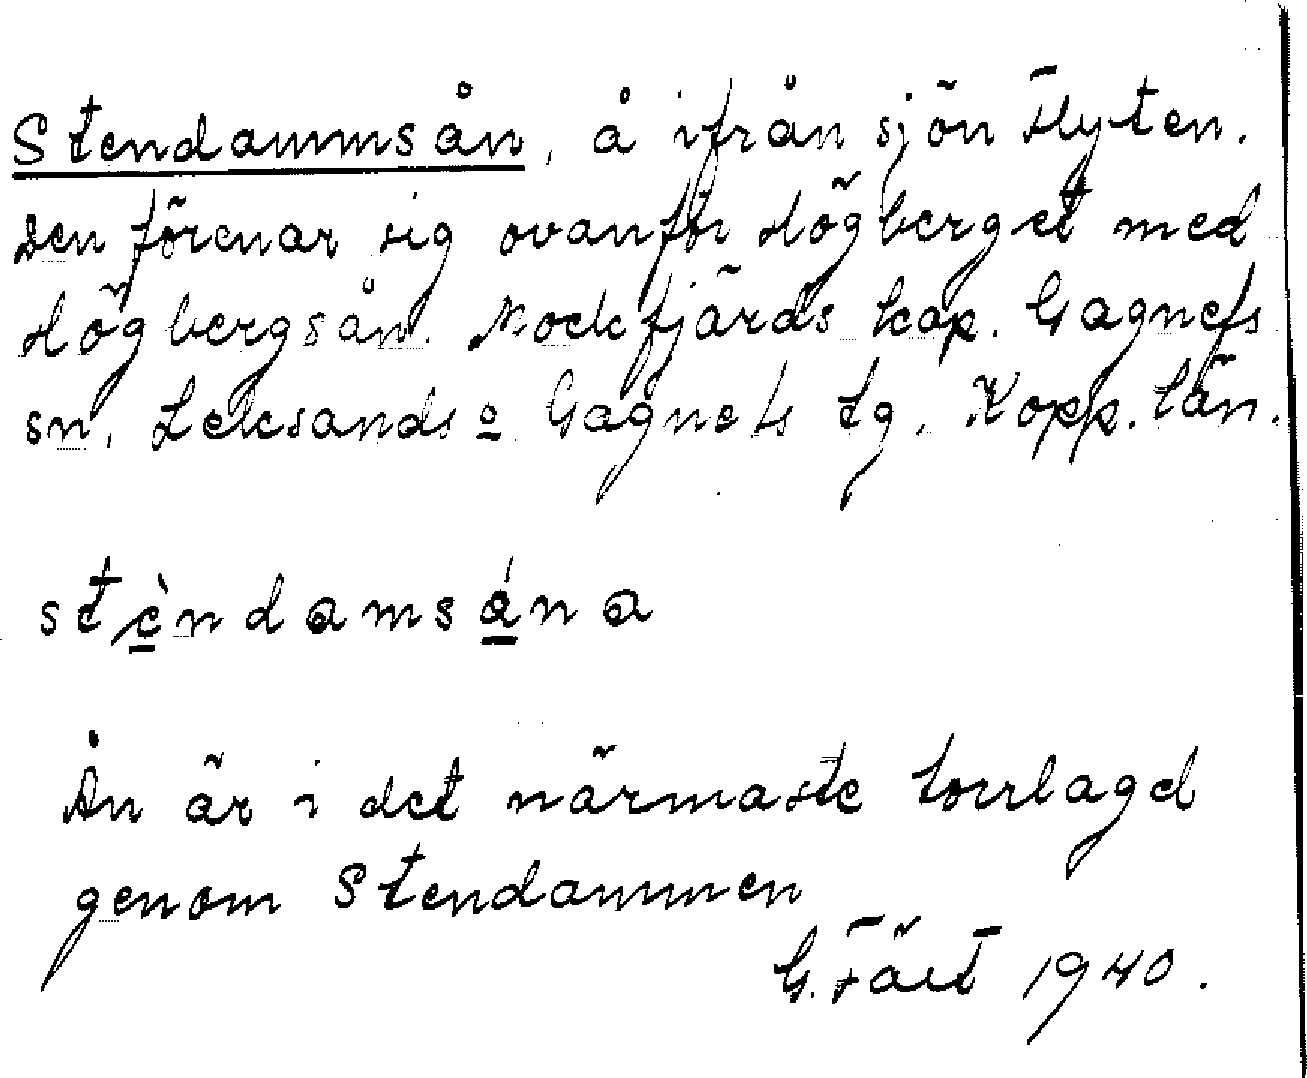 Stendammsån, å ifrån sjön Flyten.
Den förenar sig ovanför Högberget med
Högbergsån. Mockfjärds kap. Gagnefs
sn, Leksands o Gagnefs tg, Kopp. län.
stèndamsána
Ån är i det närmaste torrlagd
genom Stendammen
G. 1940.